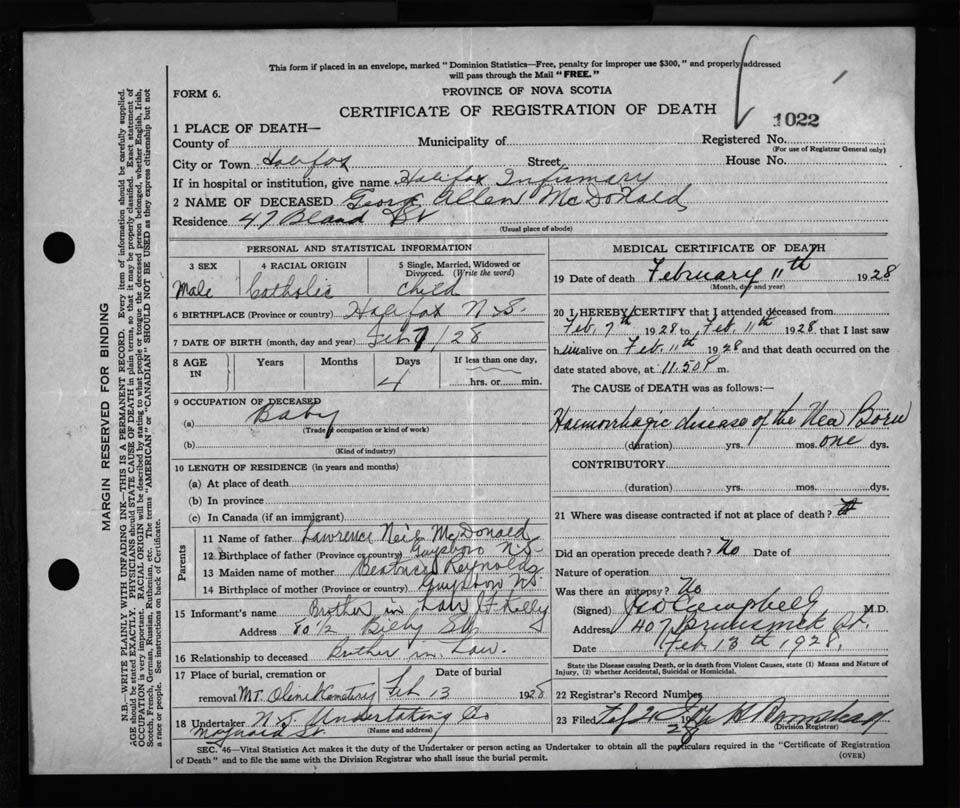 This form if placed in an envelope, marked "Dominion Statistics—Free, penalty for improper use $300," and properly addressed
will pass through the Mail "FREE."
FORM 6.
PROVINCE OF NOVA SCOTIA
CERTIFICATE OF REGISTRATION OF DEATH
1022
1 PLACE OF DEATH—
County of Municipality of Registered No.
(For use of Registrar General only)
City or Town Halifax Street House No.
If in hospital or institution, give name Halifax Infirmary
2 NAME OF DECEASED George Allen McDonald
Residence 47 Bland St
(Usual place of abode)
PERSONAL AND STATISTICAL INFORMATION
3 SEX
Male
4 RACIAL ORIGIN
Catholic
5 Single, Married, Widowed or
Divorced. (Write the word)
Child
6 BIRTHPLACE (Province or country) Halifax N.S.
7 DATE OF BIRTH (month, day and year) Feb 7/28
8 AGE IN
Years
Months
Days
4
If less than one day,
hrs. or min.
9 OCCUPATION OF DECEASED
(a) Baby
(Trade, occupation or kind of work)
(b)
(Kind of industry)
10 LENGTH OF RESIDENCE (in years and months)
(a) At place of death
(b) In province
(c) In Canada (if an immigrant)
Parents
11 Name of father Lawrence Neil McDonald
12 Birthplace of father (Province or country) Guysboro N.S.
13 Maiden name of mother Beatrice Reynolds
14 Birthplace of mother (Province or country) Guysboro NS.
15 Informant's name Brother in Law Kelly
Address 80 1/2 Bilby St
16 Relationship to deceased Brother in Law.
17 Place of burial, cremation or Date of burial
removal Mt. Olivet Cemetery Feb 13 1928
18 Undertaker N.S. Undertaking Co
Maynard St. (Name and address)
MEDICAL CERTIFICATE OF DEATH
19 Date of death February 11th 1928
(Month, day and year)
20 I HEREBY CERTIFY that I attended deceased from
Feb. 7th 1928 to Feb. 11th 1928 that I last saw
him alive on Feb. 11th 1928 and that death occurred on the
date stated above, at 11.50 P m.
The CAUSE OF DEATH was as follows:—
Haemorrhagic disease of the New Born
(duration) yrs. mos. one dys.
CONTRIBUTORY
(duration) yrs. mos. dys.
21 Where was disease contracted if not at place of death?
Did an operation precede death? No Date of
Nature of operation
Was there an autopsy? No
(Signed) Campbell, M.D.
Address 407 Brunswick St.
Date Feb. 13th 1928.
State the Disease causing Death, or in death from Violent Causes, state (1) Means and Nature of
Injury, (2) whether Accidental, Suicidal or Homicidal.
22 Registrar's Record Number
23 Filed 19
(Division Registrar)
SEC. 46—Vital Statistics Act makes it the duty of the Undertaker or person acting as Undertaker to obtain all the particulars required in the "Certificate of Registration
of Death" and to file the same with the Division Registrar who shall issue the burial permit.
(OVER)
MARGIN RESERVED FOR BINDING
N.B.—WRITE PLAINLY WITH UNFADING INK—THIS IS A PERMANENT RECORD. Every item of information should be carefully supplied.
AGE should be stated EXACTLY. PHYSICIANS should STATE CAUSE OF DEATH in plain terms, so that it may be properly classified. Exact statement of
OCCUPATION is very important. RACIAL ORIGIN will be described by stating to what people or tongue the deceased person belonged, whether English, Irish,
Scotch, French, German, Russian, Ruthenian, etc. The terms "AMERICAN" or "CANADIAN" SHOULD NOT BE USED as they express citizenship but not
a race or people. See instructions on back of Certificate.